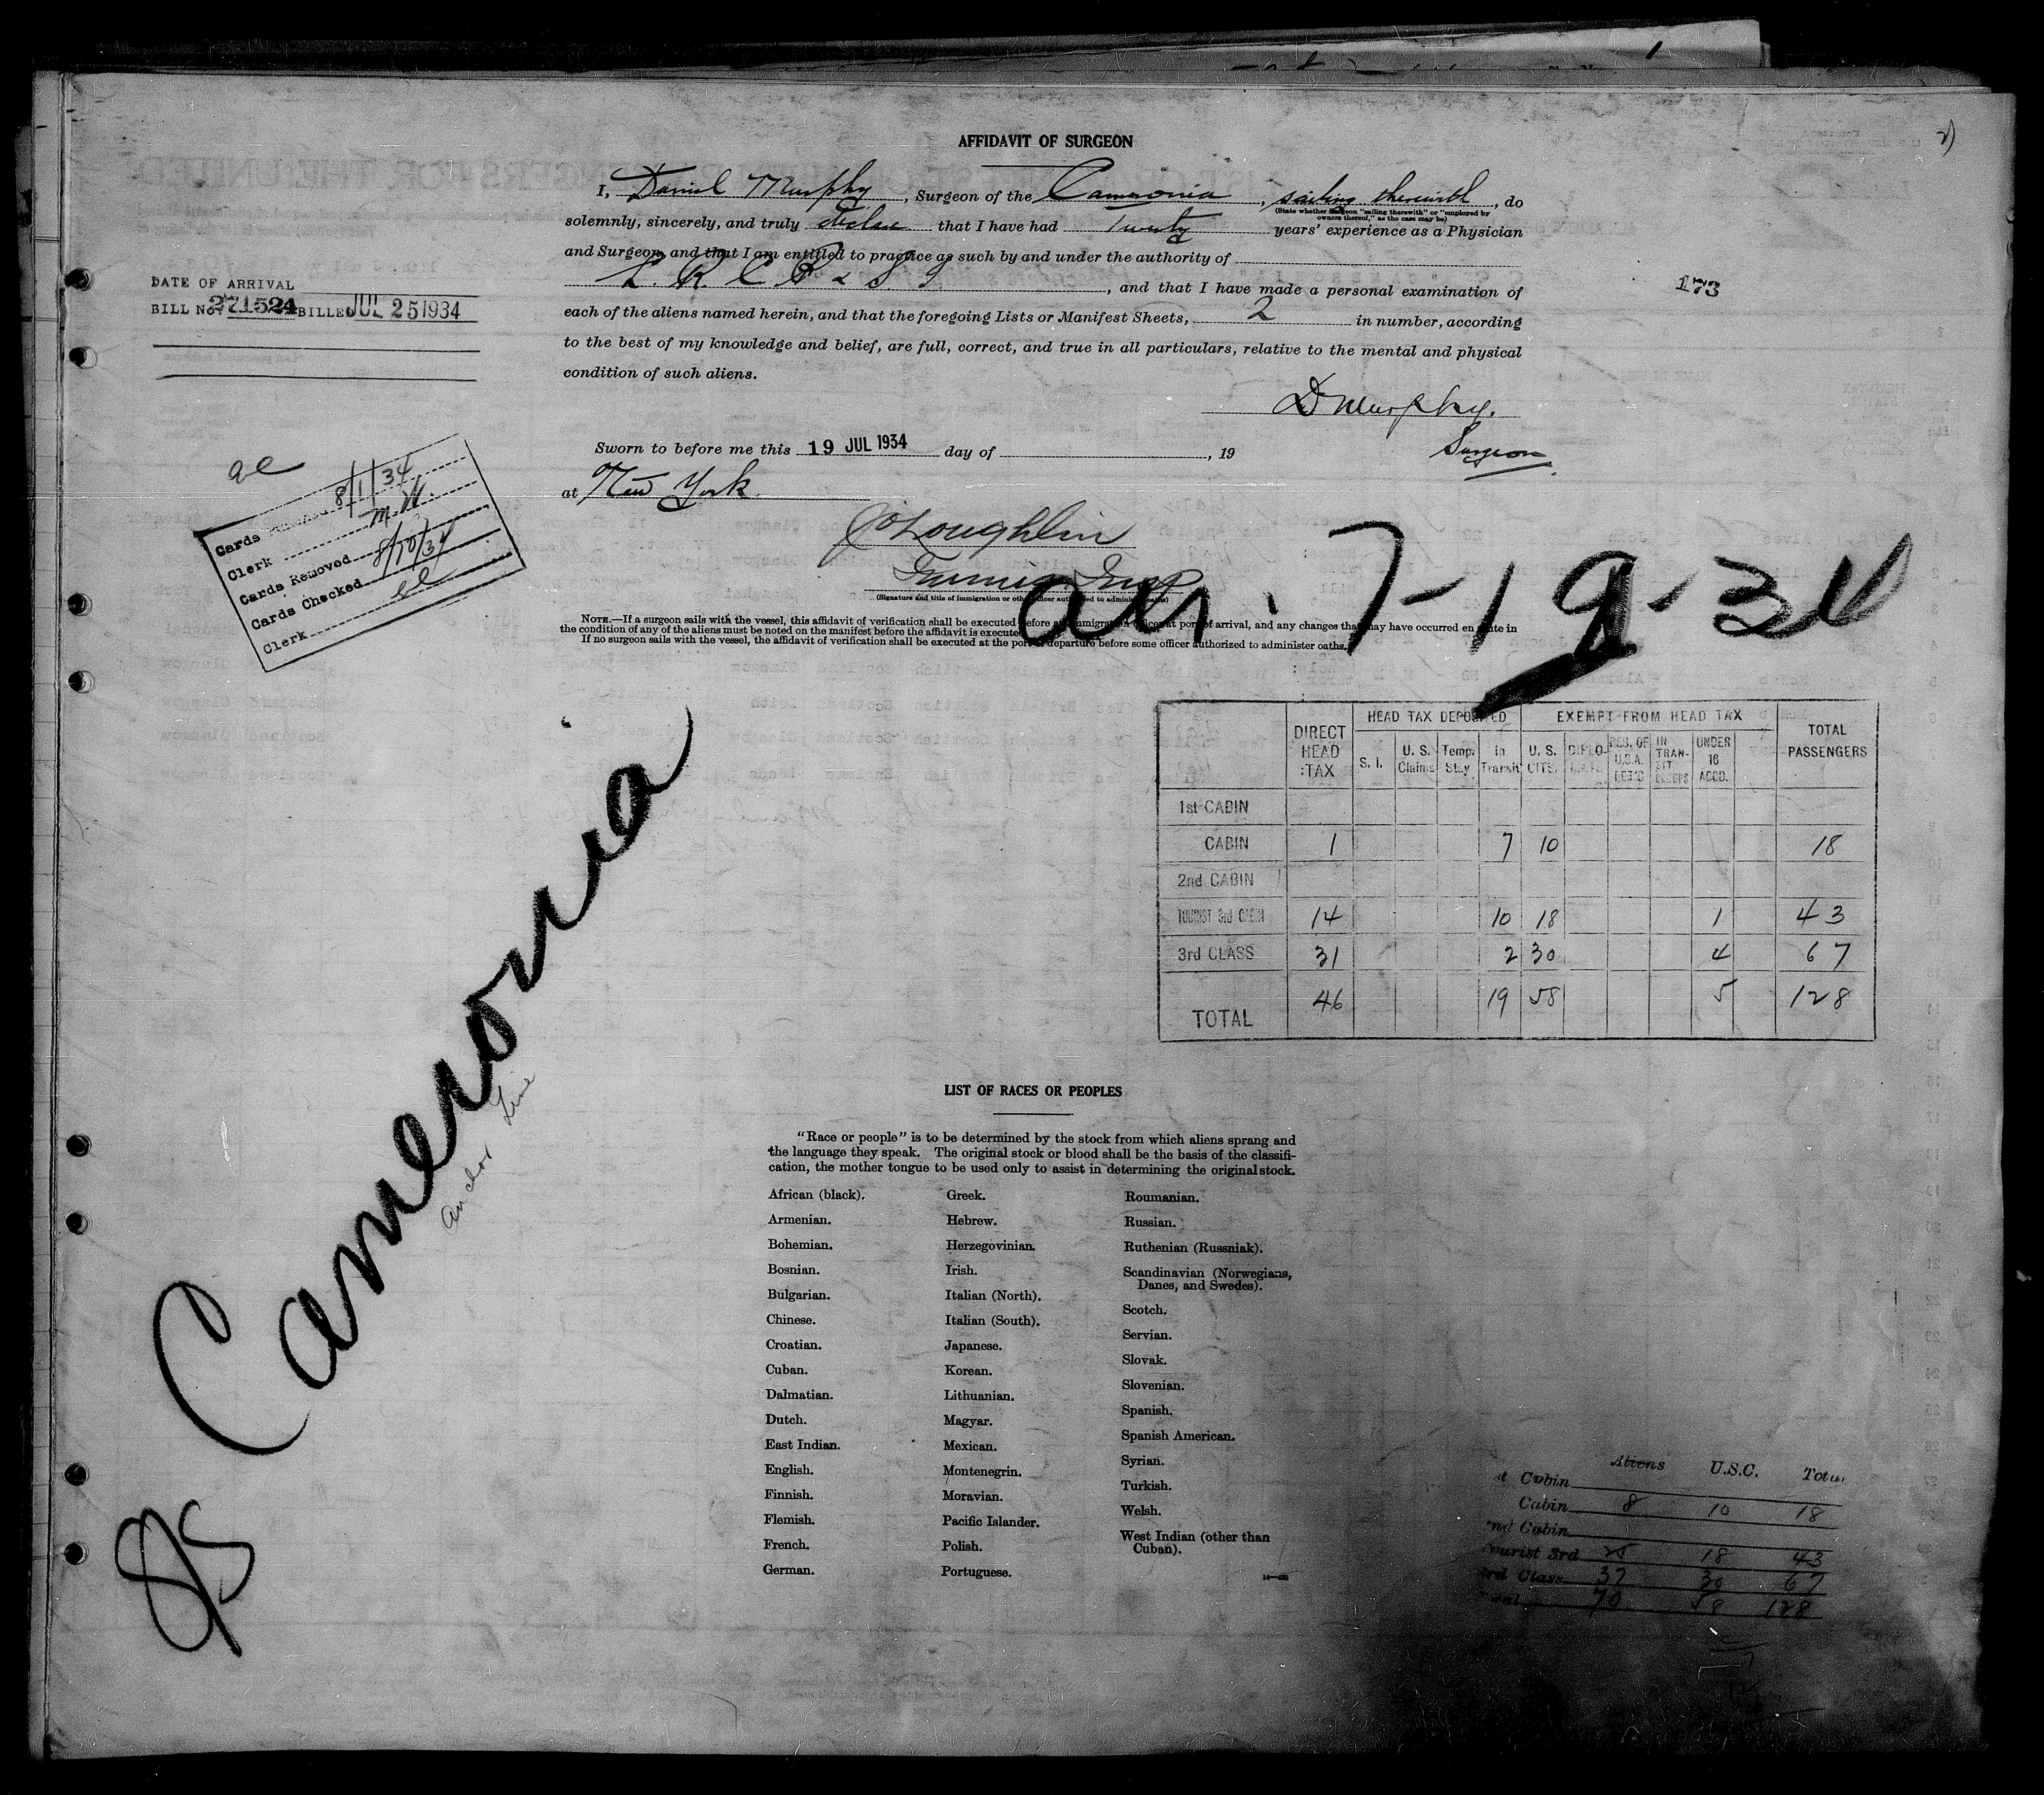 AFFIDAVIT OF SURGEON
I, Daniel Murphy, Surgeon of the Cameronia, sailing therewith, do
(State whether Surgeon "sailing therewith" or "employed by
owners thereof," as the case may be)
solemnly, sincerely, and truly declare that I have had Twenty years' experience as a Physician
and Surgeon, and that I am entitled to practice as such by and under the authority of
L. R. C. P. & S I, and that I have made a personal examination of
each of the aliens named herein, and that the foregoing Lists or Manifest Sheets, 2 in number, according
to the best of my knowledge and belief, are full, correct, and true in all particulars, relative to the mental and physical
condition of such aliens.
D Murphy.
Surgeon
Sworn to before me this 19 JUL 1934 day of , 19
at New York
O'Loughlin
Immig. Insp
(Signature and title of immigration or other officer authorized to administer oaths)
NOTE.—If a surgeon sails with the vessel, this affidavit of verification shall be executed before an immigration officer at port of arrival, and any changes that may have occurred en route in
the condition of any of the aliens must be noted on the manifest before the affidavit is executed.
If no surgeon sails with the vessel, the affidavit of verification shall be executed at the port of departure before some officer authorized to administer oaths.
DATE OF ARRIVAL
BILL No. 271524 BILLED JUL 25 1934
173
ae
Cards 8/1/34
Clerk M.W.
Cards Removed 8/10/34
Cards Checked
Clerk ae
arr. 7-19-34
SS Cameronia
Anchor Line
DIRECT HEAD TAX
HEAD TAX DEPOSITED
EXEMPT FROM HEAD TAX
TOTAL PASSENGERS
S. I. U. S. Claims Temp. Stay In Transit U. S. CITS. DIPLO-MATS RES. OF U.S.A. RET'G IN TRAN-SIT UNDER 16 ACCD.
1st CABIN
CABIN 1 7 10 18
2nd CABIN
TOURIST 3rd CABIN 14 10 18 1 43
3rd CLASS 31 2 30 4 67
TOTAL 46 19 58 5 128
LIST OF RACES OR PEOPLES
"Race or people" is to be determined by the stock from which aliens sprang and
the language they speak. The original stock or blood shall be the basis of the classifi-
cation, the mother tongue to be used only to assist in determining the original stock.
African (black).
Armenian.
Bohemian.
Bosnian.
Bulgarian.
Chinese.
Croatian.
Cuban.
Dalmatian.
Dutch.
East Indian.
English.
Finnish.
Flemish.
French.
German.
Greek.
Hebrew.
Herzegovinian.
Irish.
Italian (North).
Italian (South).
Japanese.
Korean.
Lithuanian.
Magyar.
Mexican.
Montenegrin.
Moravian.
Pacific Islander.
Polish.
Portuguese.
Roumanian.
Russian.
Ruthenian (Russniak).
Scandinavian (Norwegians,
Danes, and Swedes).
Scotch.
Servian.
Slovak.
Slovenian.
Spanish.
Spanish American.
Syrian.
Turkish.
Welsh.
West Indian (other than
Cuban).
Aliens U.S.C. Total
st Cabin
Cabin 8 10 18
2nd Cabin
Tourist 3rd 25 18 43
3rd Class 37 30 67
Total 70 58 128